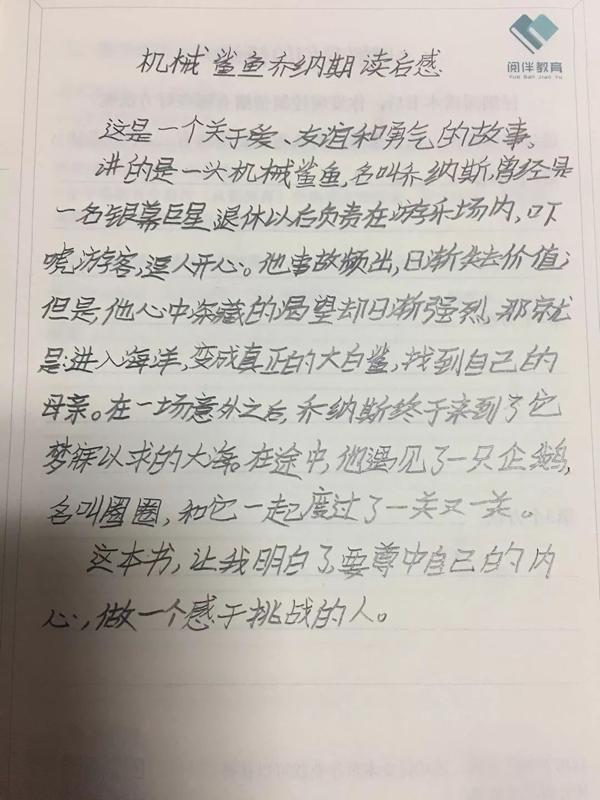 阅伴教育
Yue Ban Jiao Yu
机械鲨鱼乔纳期读后感
这是一个关于爱、友谊和勇气的故事。
讲的是一头机械鲨鱼,名叫乔纳斯,曾经是
一名银幕巨星,退休以后负责在游乐场内,吓
唬游客,逗人开心。他事故频出,日渐失去价值;
但是,他心中深藏的渴望却日渐强烈,那就
是:进入海洋,变成真正的大白鲨,找到自己的
母亲。在一场意外之后,乔纳斯终于来到了它
梦寐以求的大海。在途中,他遇见了一只企鹅,
名叫圈圈,和它一起度过了一关又一关。
这本书,让我明白了,要尊中自己的内
心,做一个感于挑战的人。